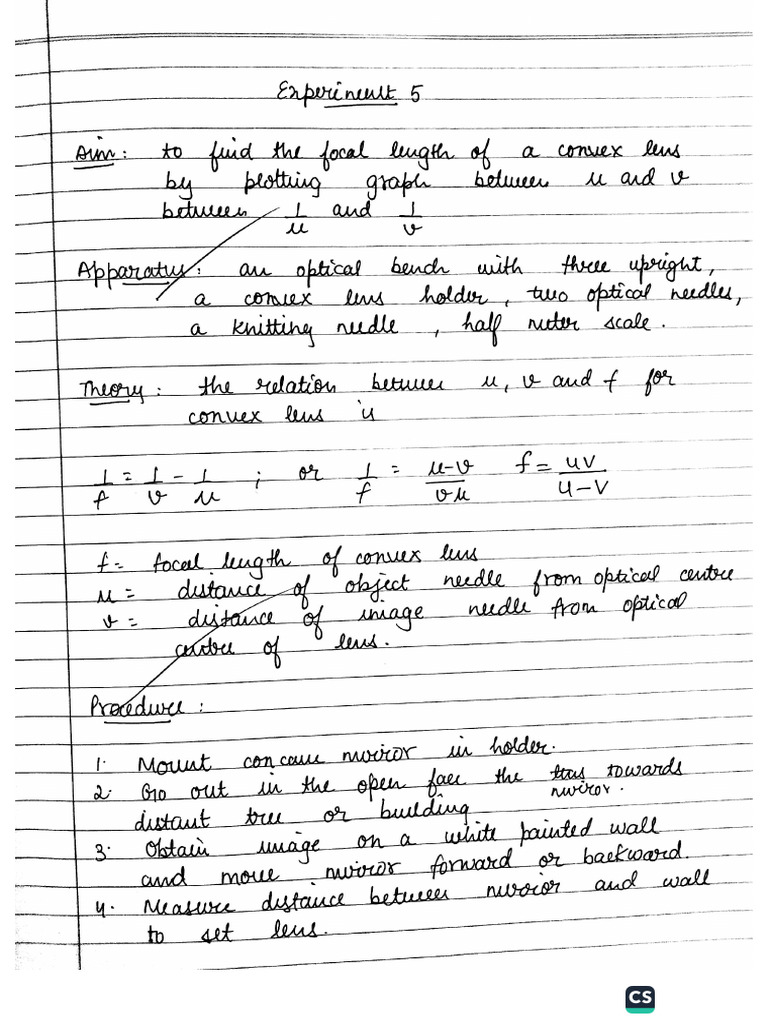 Experiment 5
Aim: to find the focal length of a convex lens
by plotting graph between u and v
between 1/u and 1/v
Apparatus: an optical bench with three upright,
a convex lens holder, two optical needles,
a knitting needle, half meter scale.
Theory: the relation between u, v and f for
convex lens is
1/f = 1/v - 1/u ; or 1/f = u-v/vu f = uv/u-v
f = focal length of convex lens
u = distance of object needle from optical centre
v = distance of image needle from optical
centre of lens.
Procedure:
1. Mount concave mirror in holder.
2. Go out in the open face the towards
mirror.
distant tree or building
3. Obtain image on a white painted wall
and move mirror forward or backward.
4. Measure distance between mirror and wall
to set lens.
CS